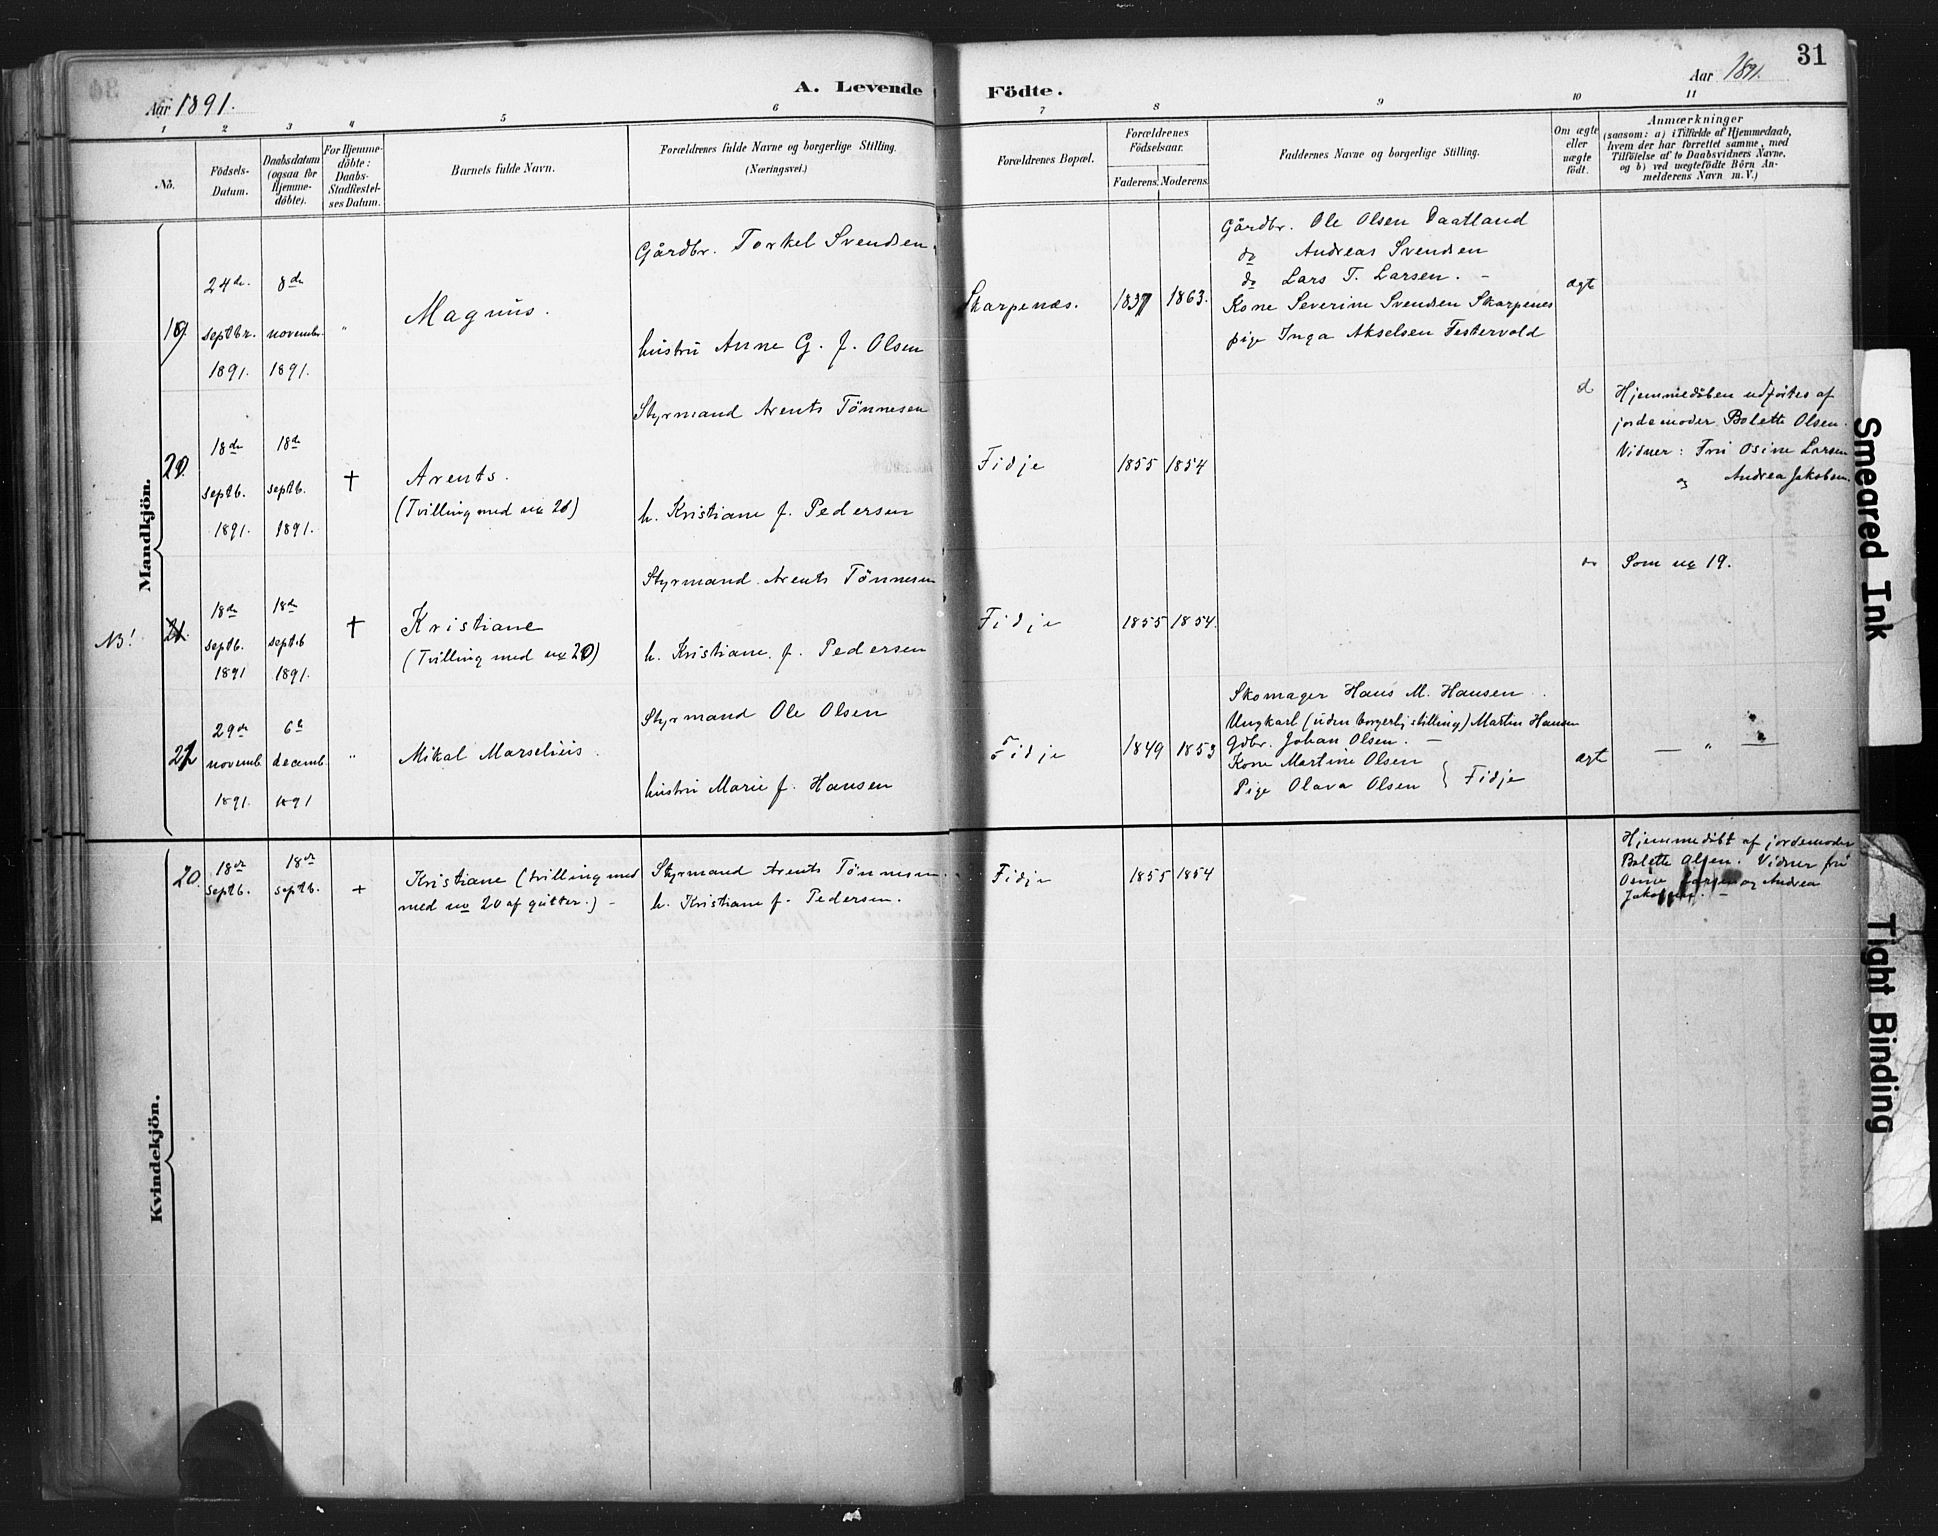 Aar 1891.
A. Levende Födte.
Aar 1891.
31
1 2 3 4 5 6 7 8 9 10 11
No.
Födsels-Datum.
Daabsdatum (ogsaa for Hjemme-döbte).
For Hjemme-döbte: Daabs-Stadfæstel-ses Datum.
Barnets fulde Navn.
Forældrenes fulde Navne og borgerlige Stilling.
(Næringsvei.)
Forældrenes Bopæl.
Forældrenes Födselsaar.
Faderens. Moderens.
Faddernes Navne og borgerlige Stilling.
Om ægte eller uægte födt.
Anmærkninger
(saasom: a) i Tilfælde af Hjemmedaab,
hvem der har forrettet samme, med
Tilföielse af to Daabsvidners Navne,
og b) ved uægtefödte Börn An-
melderens Navn m. V.)
Mandkjön.
19
24de septbr. 1891.
8de novembr. 1891.
"
Magnus.
Gårdbr. Torkel Svendsen
hustru Anne G. f. Olsen
Skarpenæs.
1837
1863.
Gårdbr. Ole Olsen Daatland
do Andreas Svendsen
do Lars T. Larsen. -
Kone Severine Svendsen Skarpenes
pige Inga Akselsen Festervold
ægte
20.
18de septb. 1891.
18de septb. 1891.
†
Arents.
(Tvilling med no 21)
Styrmand Arents Tönnesen
h. Kristiane f. Pedersen
Fidje
1855
1854
do
Hjemmedåben udförtes af
jordemoder Bolette Olsen.
Vidner: Fru Osine Larsen
og Andrea Jakobsen.
NB!
21.
18de septb. 1891
18de septb 1891.
†
Kristiane
(Tvilling med no 20)
Styrmand Arents Tönnesen
h. Kristiane f. Pedersen
Fidje
1855
1854.
do
Som no 19.
21
29de novemb. 1891.
6te decemb. 1891
"
Mikal Marselius.
Styrmand Ole Olsen
hustru Marie f. Hansen
Fidje
1849
1853
Skomager Hans M. Hansen
Ungkarl (uden borgerlj stilling) Martin Hansen
Gdbr. Johan Olsen. -
Kone Martine Olsen
Pige Olava Olsen } Fidje
ægte
— " —
Kvindekjön.
20.
18de septb.
18de septb.
+
Kristiane (tvilling med
med no 20 af gutter.) -
Styrmand Arents Tönnesen.
h. Kristiane f. Pedersen.
Fidje
1855
1854
Hjemmedöbt af jordemoder
Bolette Olsen. Vidner fru
Osine Larsen og Andrea
Jakobsen. -
Smeared Ink
Tight Binding